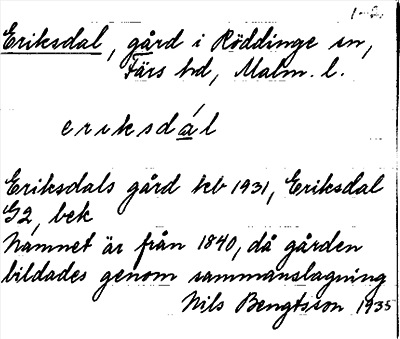 1-2.
Eriksdal, gård i Röddinge sn,
Färs hd, Malm. l.
eriksdál
Eriksdals gård kb 1931, Eriksdal
G2, bek
Namnet är från 1840, då gården
bildades genom sammanslagning
Nils Bengtsson 1935